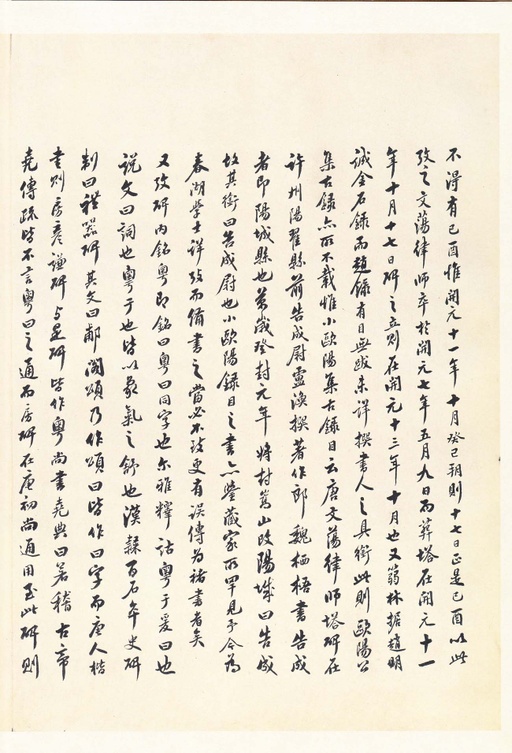 不得有己酉惟開元十一年十月癸巳朔則十七日正是己酉以此
攷之文蕩律師卒於開元七年五月九日而葬塔在開元十一
年十月十七日碑之立則在開元十三年十月也又翁林据趙明
誠金石錄而趙錄有目無跋未詳撰書人之具銜此則歐陽公
集古錄亦所不載惟小歐陽集古錄目云唐文蕩律師塔碑在
許州陽翟縣前告成尉盧渙撰著作郎魏栖梧書告成
者即陽城縣也萬歲登封元年將封嵩山改陽城曰告成
故其銜曰告成尉也小歐陽錄目之書亦鑒藏家所罕見予今為
春湖學士詳攷而備書之當必不致更有誤傳為褚書者矣
又攷碑內銘粵即銘曰粵曰同字也尔雅釋詁粵于爰曰也
說文曰詞也粵于也皆以象氣之舒也漢隸百石卒史碑
制曰禮器碑其文曰郙閣頌乃作頌曰皆作曰字而唐人楷
書則房彥謙碑与是碑皆作粵尚書堯典曰若稽古帝
堯傳疏皆不言粵曰之通而房碑在唐初尚通用至此碑則